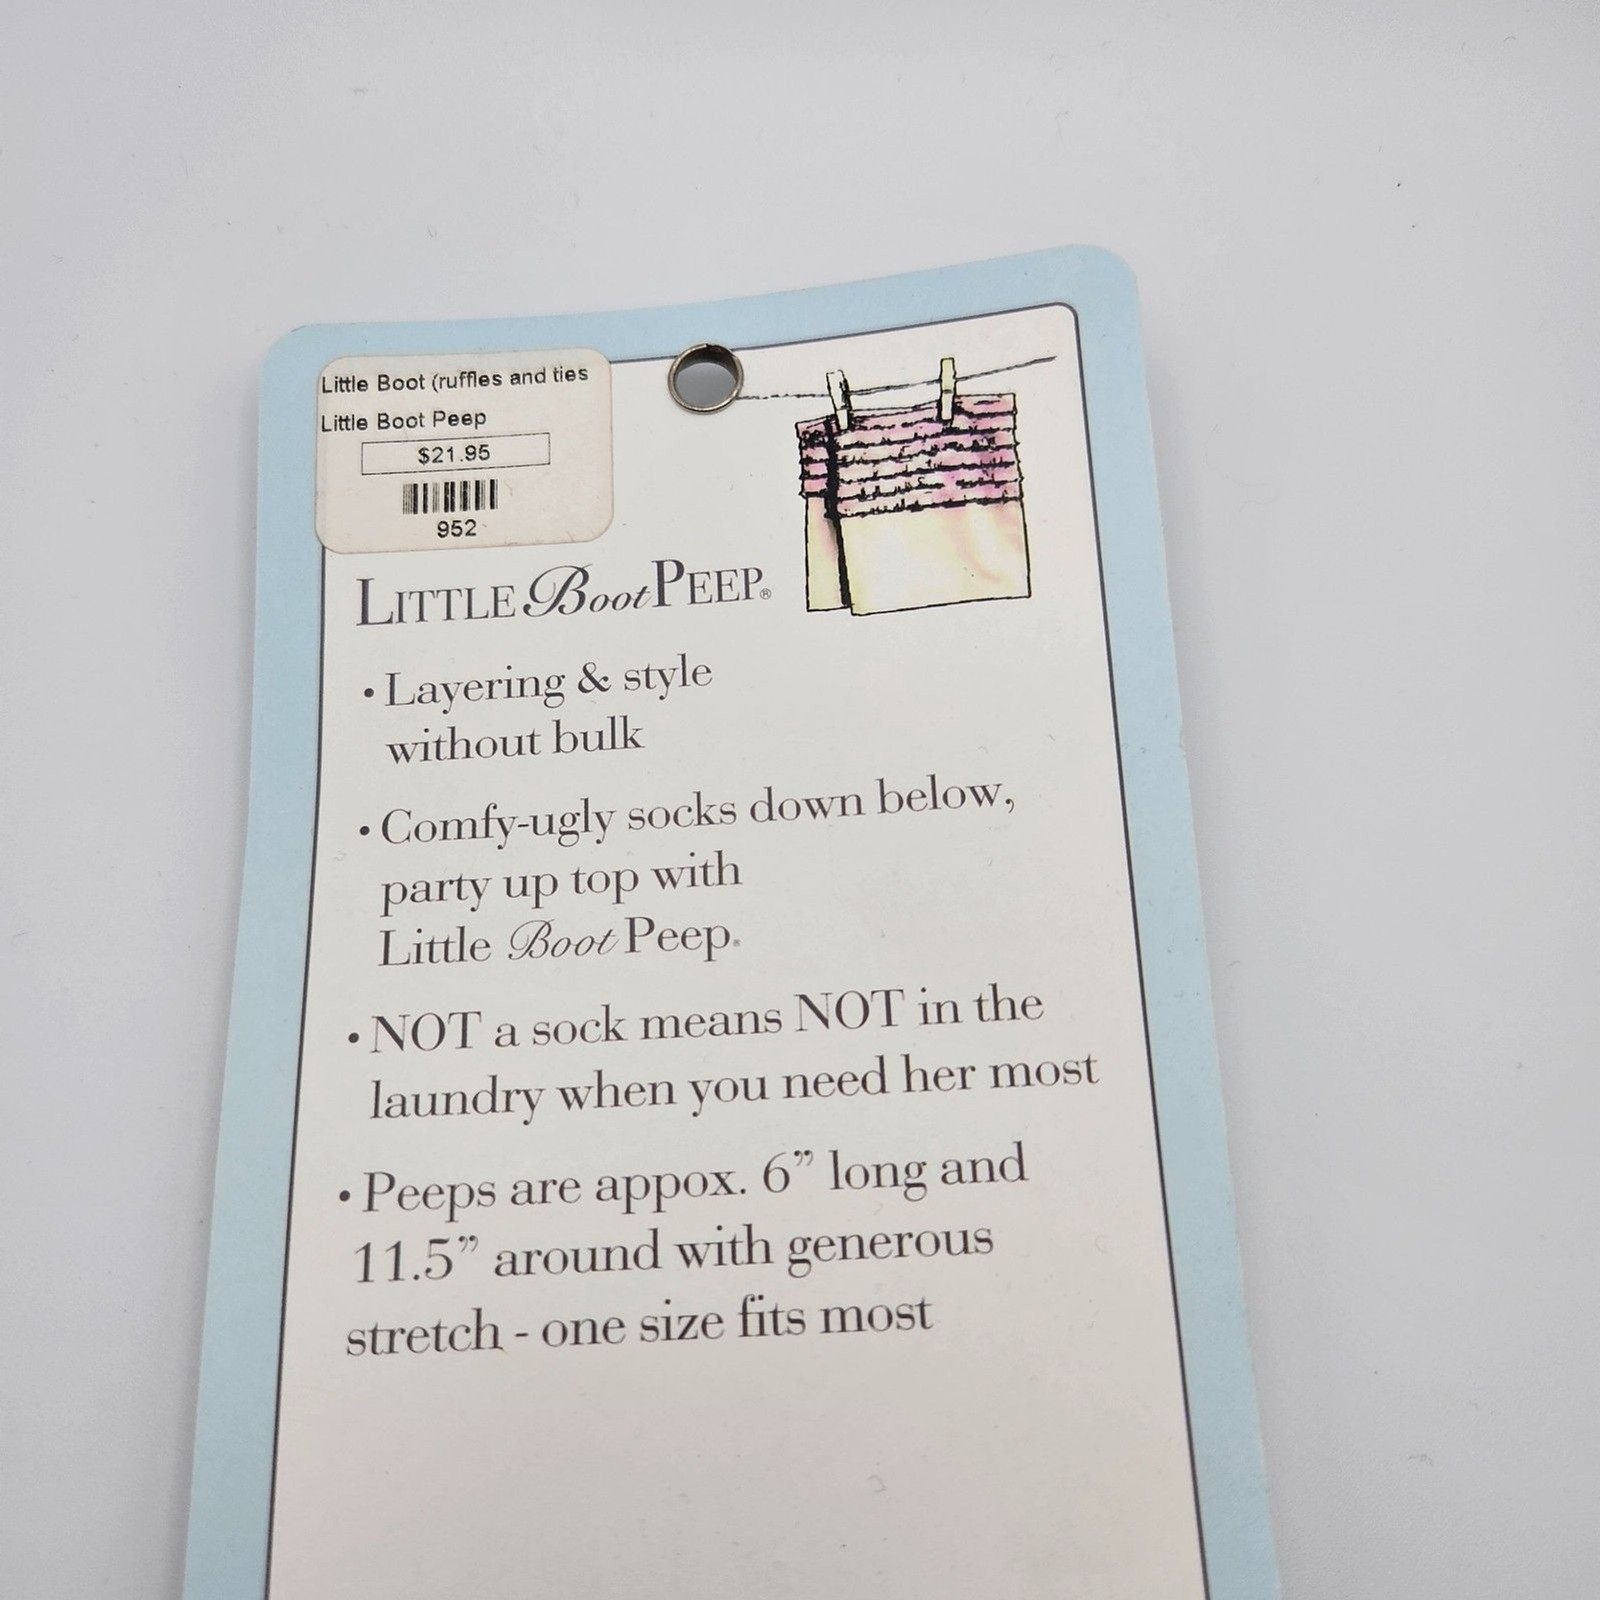 Little Boot (ruffles and ties
Little Boot Peep
$21.95
952
LITTLE Boot PEEP®
• Layering & style
without bulk
• Comfy-ugly socks down below,
party up top with
Little Boot Peep®
• NOT a sock means NOT in the
laundry when you need her most
• Peeps are appox. 6” long and
11.5” around with generous
stretch - one size fits most